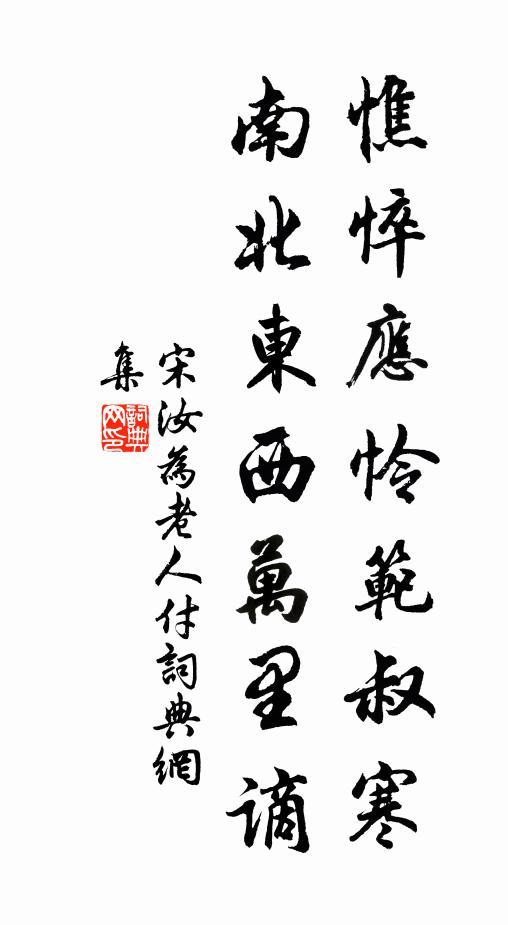 憔悴應怜範叔寒
南北東西萬里謫
宋汝為老人付詞典網
集
詞典網印